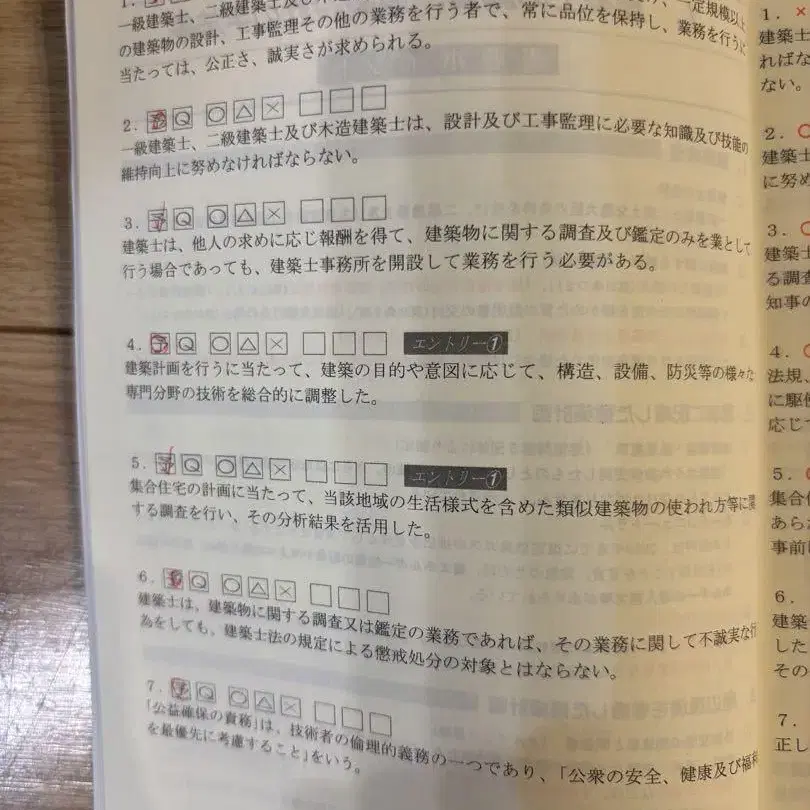 1.
一級建築士、二級建築士及び木造
一定規模以上
の建築物の設計、工事監理その他の業務を行う者で、常に品位を保持し、業務を行うに
当たっては、公正さ、誠実さが求められる。
2. 予 Q ○ △ × □ □ □
一級建築士、二級建築士及び木造建築士は、設計及び工事監理に必要な知識及び技能の
維持向上に努めなければならない。
3. 予 Q ○ △ × □ □ □
建築士は、他人の求めに応じ報酬を得て、建築物に関する調査及び鑑定のみを業として
行う場合であっても、建築士事務所を開設して業務を行う必要がある。
4. 予 Q ○ △ × □ □ □ エントリー①
建築計画を行うに当たって、建築の目的や意図に応じて、構造、設備、防災等の様々な
専門分野の技術を総合的に調整した。
5. 予 Q ○ △ × □ □ □ エントリー①
集合住宅の計画に当たって、当該地域の生活様式を含めた類似建築物の使われ方等に関
する調査を行い、その分析結果を活用した。
6. 予 Q ○ △ × □ □ □
建築士は、建築物に関する調査又は鑑定の業務であれば、その業務に関して不誠実な行
為をしても、建築士法の規定による懲戒処分の対象とはならない。
7. 予 Q ○ △ × □ □ □
「公益確保の責務」は、技術者の倫理的義務の一つであり、「公衆の安全、健康及び福利
を最優先に考慮すること」をいう。
1. ×
建築士
ればな
ない。
2. ○
建築士
に努め
3. ○
建築士
る調査
知事の
4. ○
法規、
に駆使
応じて
5. ○
集合住
あらか
事前
6.
建築
した
その
7.
正し